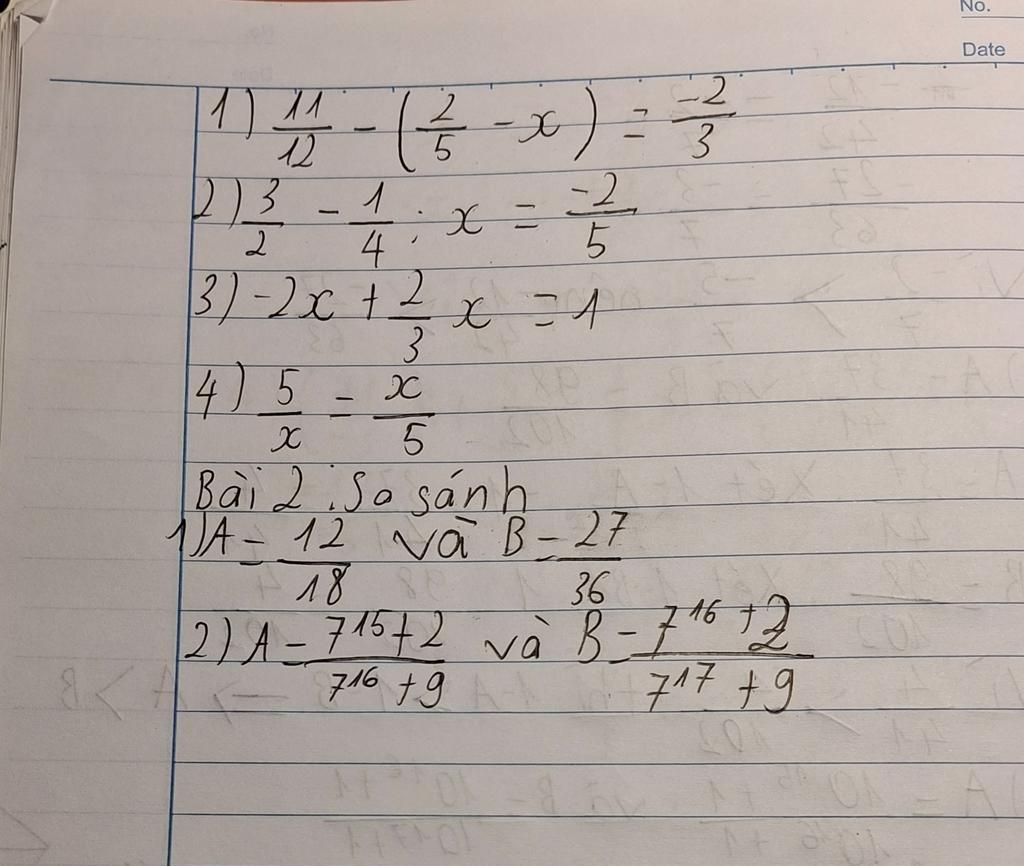 No.
Date
1) 11/12 - (2/5 - x) = -2/3
2) 3/2 - 1/4 : x = -2/5
3) -2x + 2/3 x = 1
4) 5/x = x/5
Bài 2. So sánh
1) A = 12/18 và B = 27/36
2) A = (7^15 + 2)/(7^16 + 9) và B = (7^16 + 2)/(7^17 + 9)